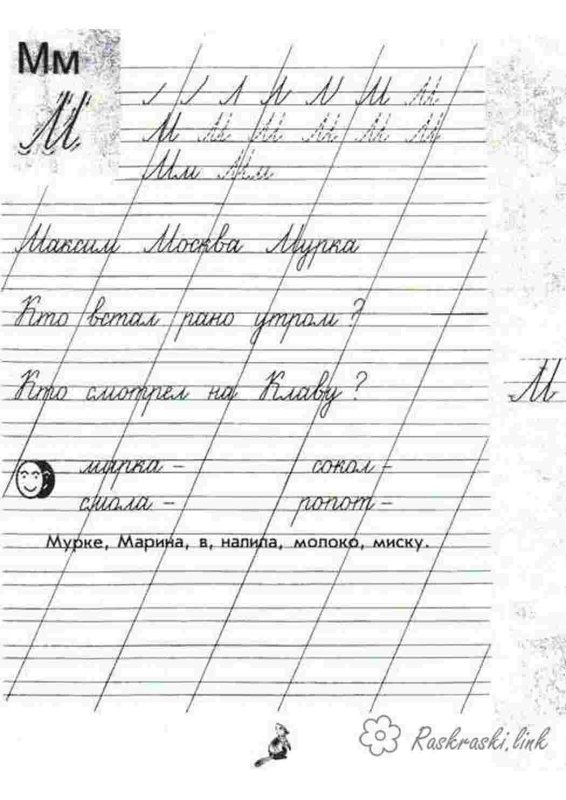 Мм
М
М М
М М М М М М
Мм Мм
Максим Москва Мурка
Кто встал рано утром?
Кто смотрел на Клаву?
М
марка – сокол –
смола – ропот –
Мурке, Марина, в, налила, молоко, миску.
Raskraski.link